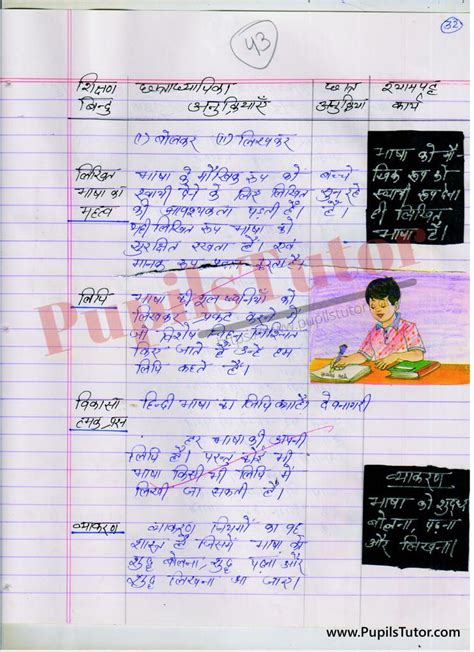 43
32
शिक्षण छात्राध्यापिका छात्र श्यामपट्ट
बिन्दु अनुक्रियाएँ अनुक्रिया कार्य
(i) बोलकर (ii) लिखकर
लिखित भाषा के मौखिक रूप को बच्चे
भाषा का स्थायी देने के लिए लिखित सुन रहे
महत्व की आवश्यकता पड़ती है। हैं।
लिखित रूप भाषा को
सुरक्षित रखता है। एवं
मानक रूप करता है।
भाषा को मौ-
खिक रूप को
स्थायी रूप देना
ही लिखित
भाषा है।
लिपि भाषा की मूल ध्वनियों को
लिखकर प्रकट करने में
जो विशेष चिह्न निश्चित
किए जाते हैं उन्हें हम
लिपि कहते हैं।
विकासा हिन्दी भाषा का लिपि बताएँ? देवनागरी
त्मक प्रश्न
हर भाषा की अपनी
लिपि है। परन्तु कोई भी
भाषा किसी भी लिपि में
लिखी जा सकती है।
व्याकरण व्याकरण नियमों का वह
शास्त्र है जिसमें भाषा को
शुद्ध बोलना, शुद्ध पढ़ना और
शुद्ध लिखना आ जाए।
व्याकरण
भाषा को शुद्ध
बोलना, पढ़ना
और लिखना।
PupilsTutor
www.pupilstutor.com
www.PupilsTutor.com